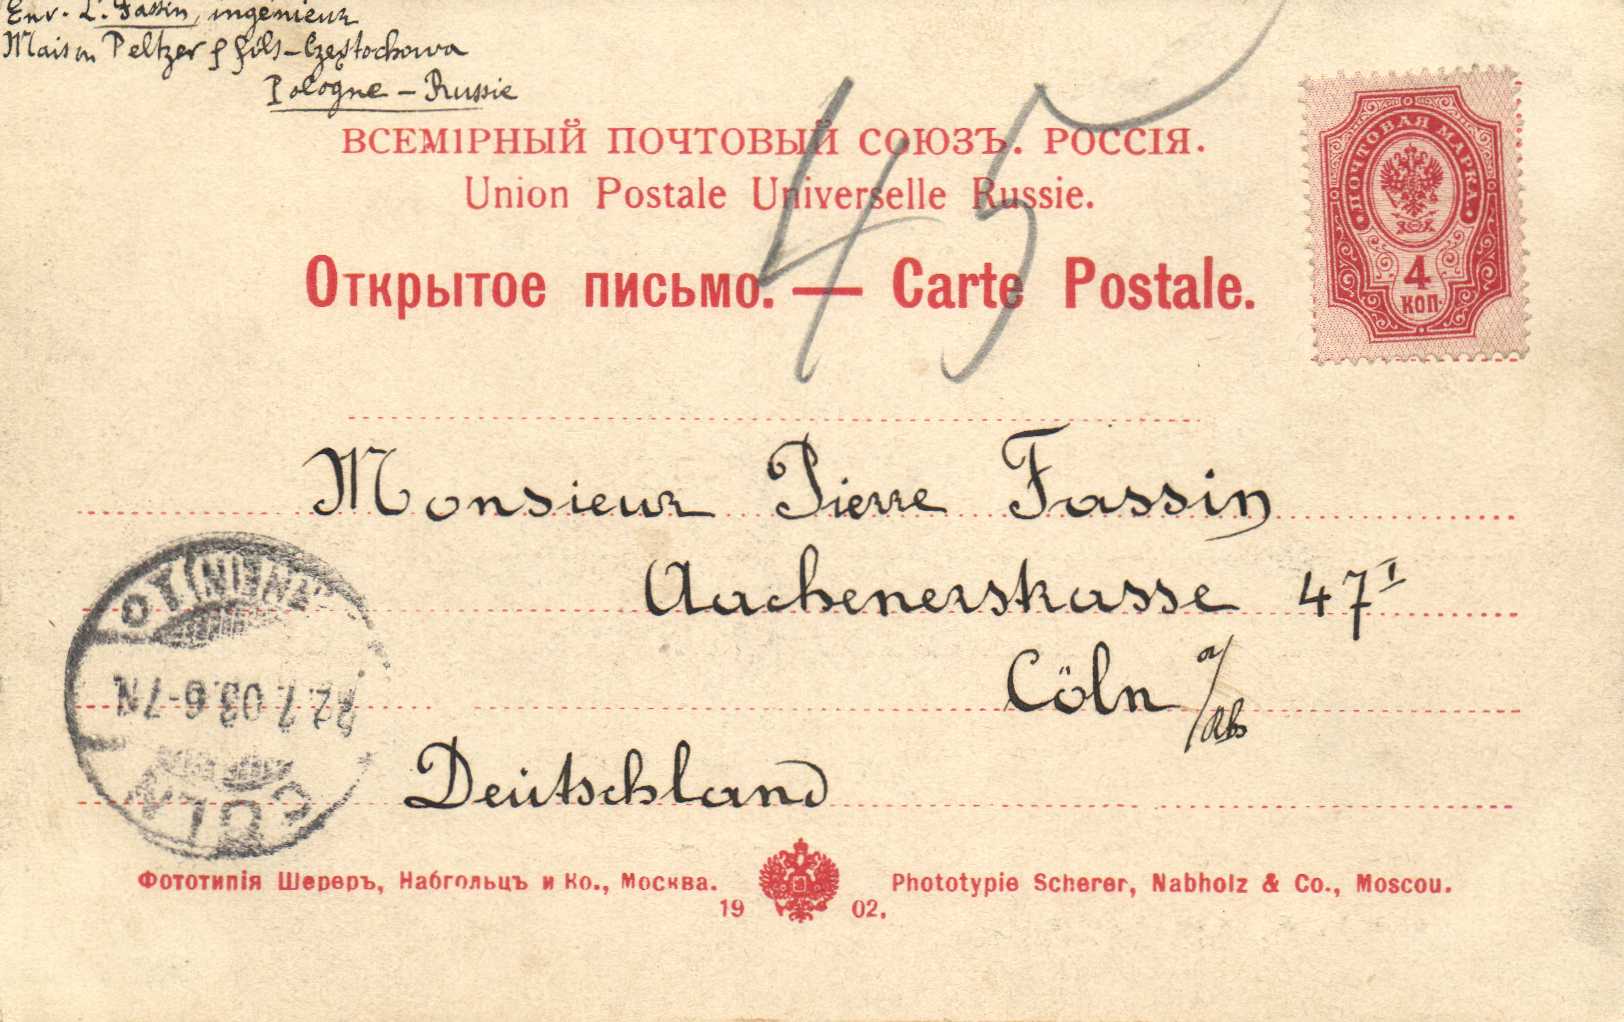 Env. L. Fassin, ingénieur
Maison Peltzer & fils - Częstochowa
Pologne - Russie
ВСЕМІРНЫЙ ПОЧТОВЫЙ СОЮЗЪ. РОССІЯ.
Union Postale Universelle Russie.
Открытое письмо. — Carte Postale.
45
ПОЧТОВАЯ МАРКА
4
КОП.
Monsieur Pierre Fassin
Aachenerstrasse 47 I
Cöln a/Rh
Deutschland
CÖLN
22.7.03.6-7N.
Фототипія Шереръ, Набгольцъ и Ко., Москва.
Phototypie Scherer, Nabholz & Co., Moscou.
1902.